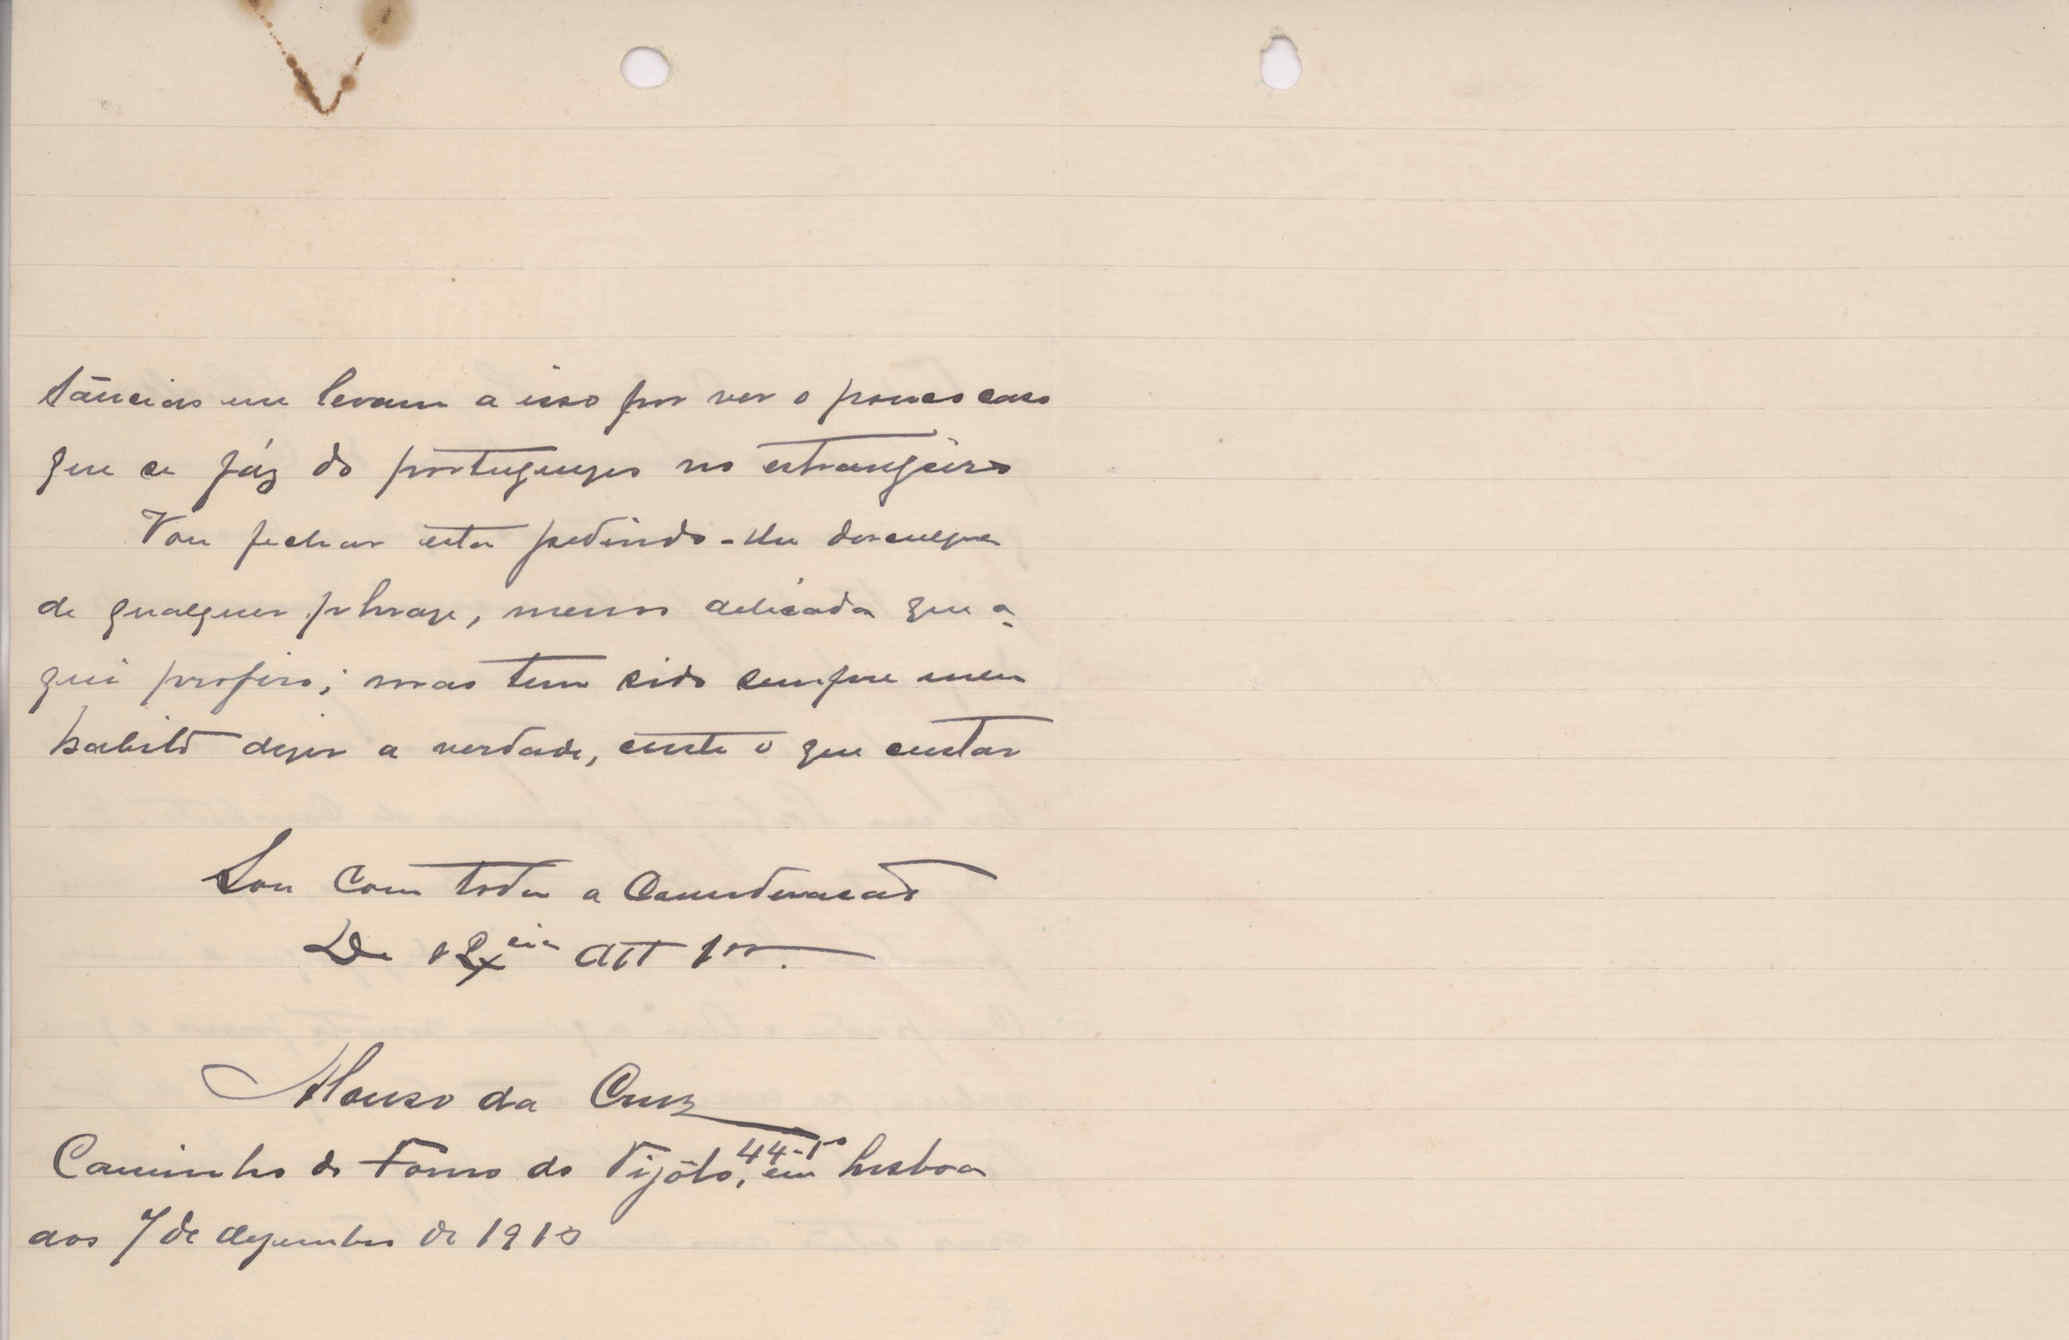 tâncias me levam a isso por ver o pouco caso
que se fáz do portuguezes no estrangeiro
Vou fechar esta pedindo-lhe desculpa
de qualquer phraze, menos delicada que a-
qui profiro; mas tem sido sempre meu
habito dizer a verdade, custe o que custar
Sou com toda a Consideração
De V Excia Att
Afonso da Cruz
Caminho do Forno do Tijôlo, 44-1º em Lisboa
aos 7 de dezembro de 1910